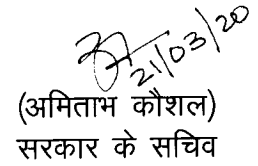 21/03/20
(अमिताभ कौशल)
सरकार के सचिव